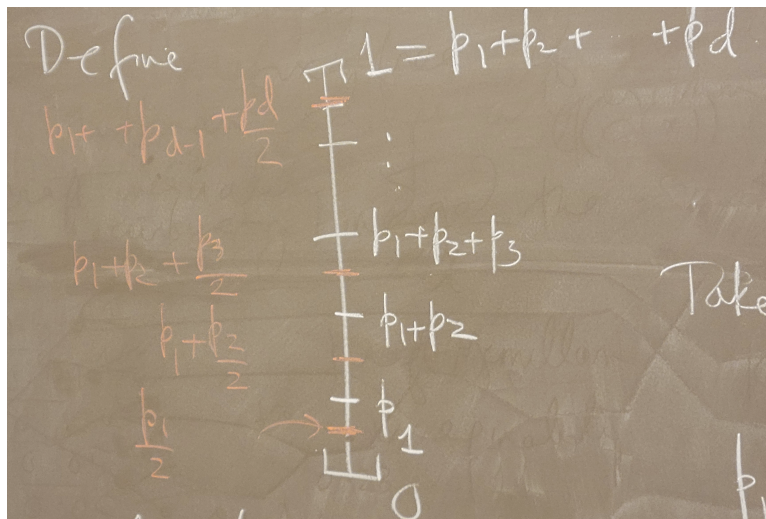 Define 1 = p₁+p₂+ ·· +pd
p₁+ +p_{d-1}+pd/2
⋮
p₁+p₂+p₃
p₁+p₂+p₃/2
Take
p₁+p₂
p₁+p₂/2
p₁
p₁/2
0